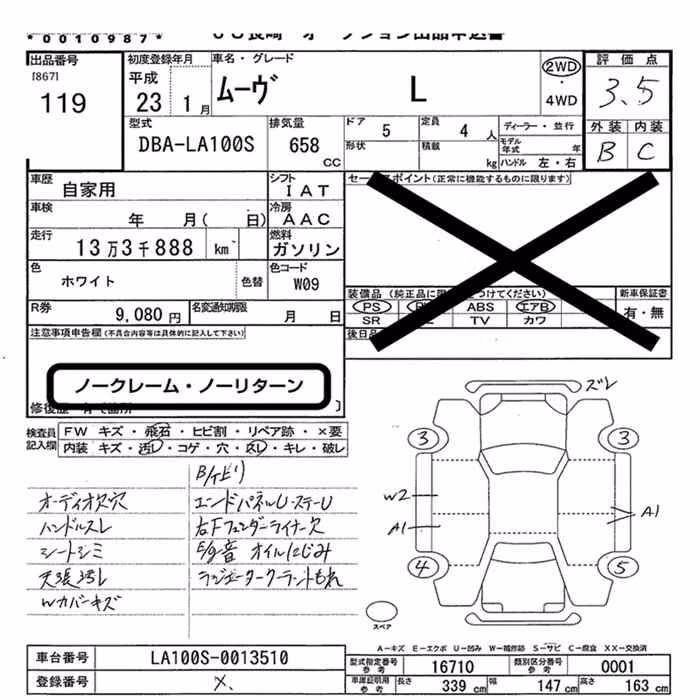 *0010987*
出品番号
[867]
119
初度登録年月
平成
23 1月
車名・グレード
ムーヴ L
2WD
・
4WD
評価点
3.5
外装 内装
B C
型式
DBA-LA100S
排気量
658
CC
ドア 5
定員 4 人
形状
積載 kg
ディーラー・並行
モデル年式 年
ハンドル 左・右
車歴
自家用
シフト
IAT
車検
年 月( 日)
冷房
AAC
走行
13万3千888 km
燃料
ガソリン
色
ホワイト
色替
色コード
W09
R券
9,080 円
名変通知期限
月 日
セールスポイント(正常に機能するものに限ります)
装備品
PS ABS エアB
SR TV カワ
新車保証書
有・無
後日品
注意事項申告欄(不具合内容等は具体的に記入して下さい)
ノークレーム・ノーリターン
検査員
記入欄
FW キズ・飛石・ヒビ割・リペア跡・×要
内装 キズ・汚レ・コゲ・穴・スレ・キレ・破レ
オーディオ欠穴
ハンドルスレ
シートシミ
天張汚レ
Wカバーキズ
エンドパネルU・ステーU
右Fフェンダーライナー欠
E/g音 オイルにじみ
ラジエータークーラントもれ
ズレ
3 3
W2
A1 A1
4 5
スペア
A-キズ E-エクボ U-凹み W-補修跡 S-サビ C-腐食 XX-交換済
車台番号
LA100S-0013510
登録番号
×.
型式指定番号
参考
16710
類別区分番号
参考
0001
車庫証明用
参考
長さ 339 cm
幅 147 cm
高さ 163 cm